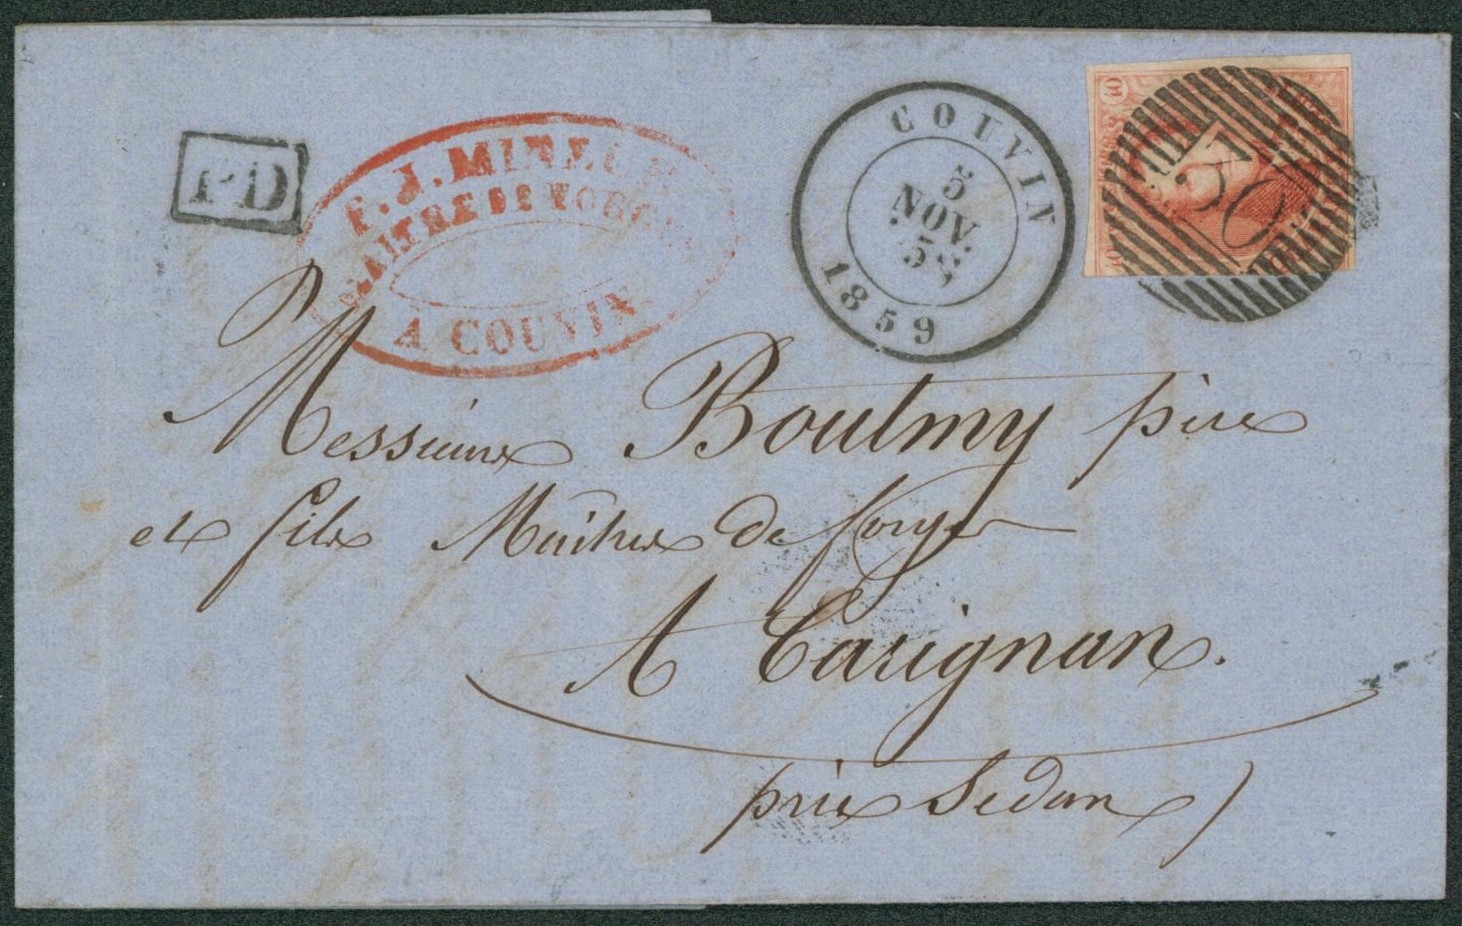 PD
F. J.
MAITRE DE FORGES
A COUVIN
COUVIN
5
NOV.
1859
30
40
Messieurs Boutmy père
et fils Maîtres de forges
A Carignan.
près Sedan)